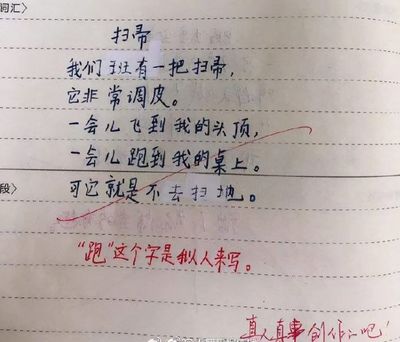 词汇〉
扫帚
我们班有一把扫帚,
它非常调皮。
一会儿飞到我的头顶,
一会儿跑到我的桌上。
段〉
可它就是不去扫地。
“跑”这个字是拟人来写。
真人真事创作吧!